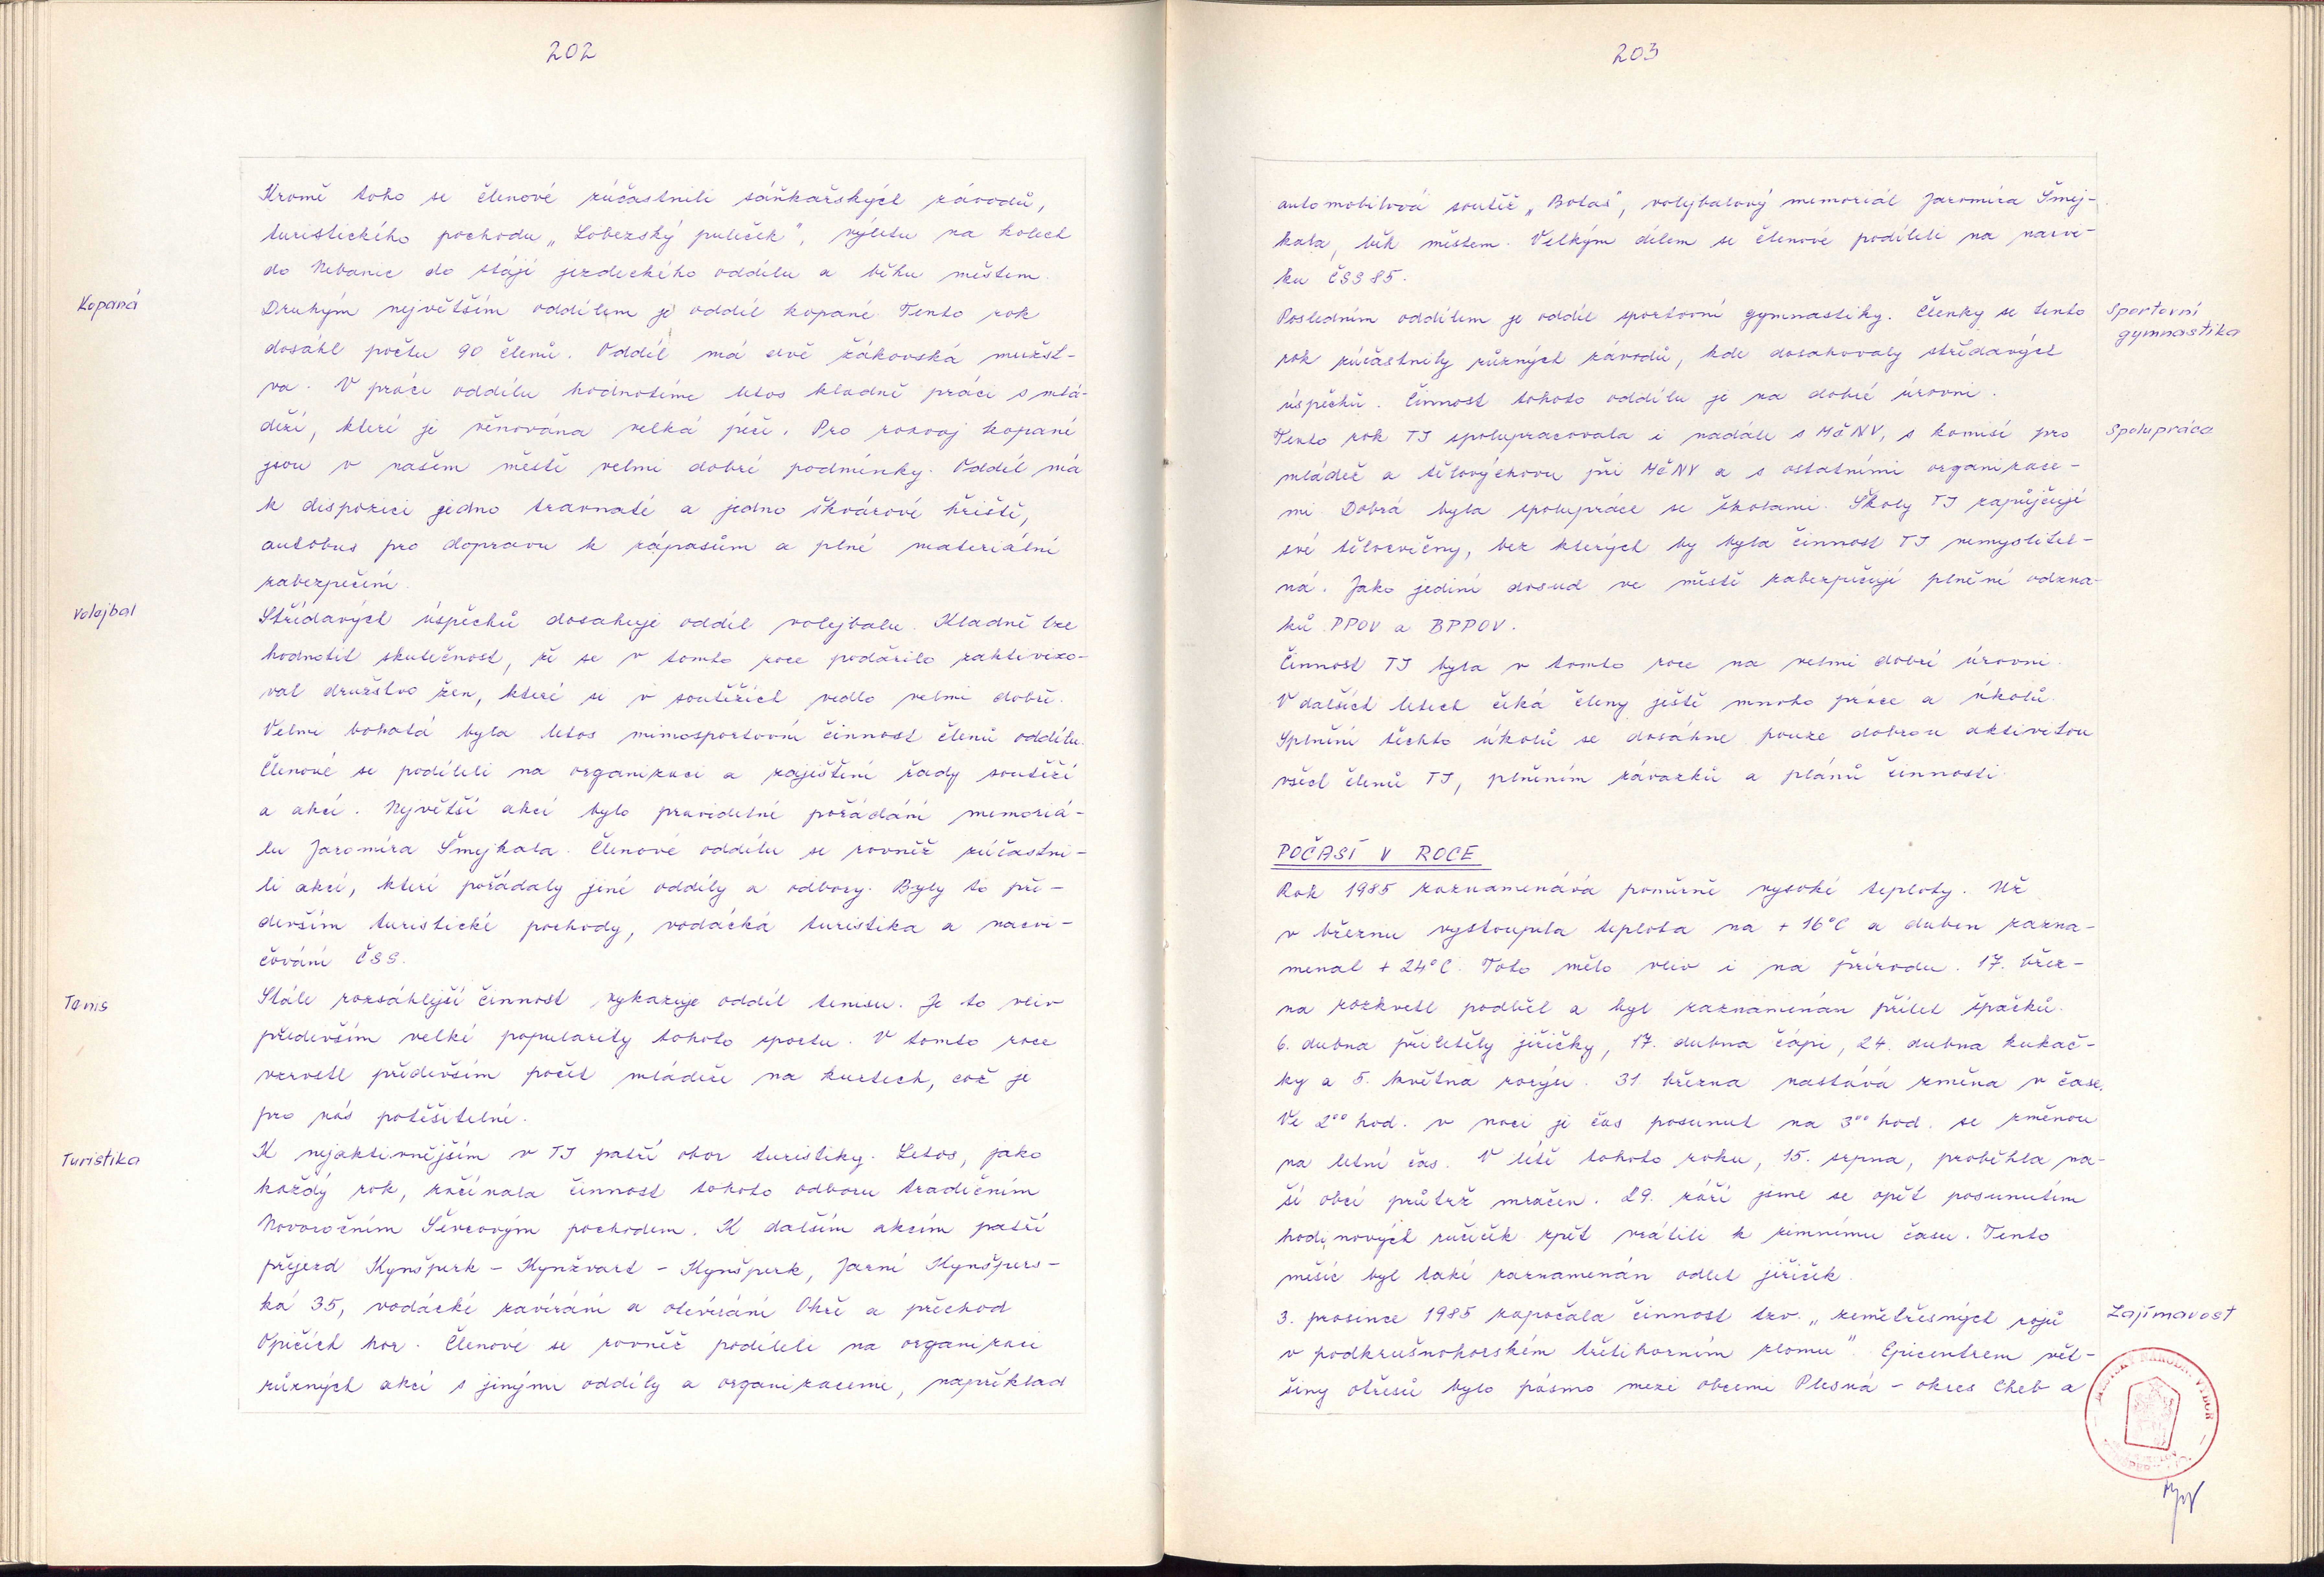 202
Kromě toho se členové zúčastnili sáňkařských závodů,
turistického pochodu „Lobezský puleček", výletu na kolech
do Nebanic do stájí jezdeckého oddílu a běhu městem.
Kopaná
Druhým největším oddílem je oddíl kopané Tento rok
dosáhl počtu 90 členů. Oddíl má dvě žákovská mužst-
va. V práci oddílu hodnotíme letos kladně práci s mlá-
deží, které je věnována velká péče. Pro rozvoj kopané
jsou v našem městě velmi dobré podmínky. Oddíl má
k dispozici jedno travnaté a jedno škvárové hřiště,
autobus pro dopravu k zápasům a plné materiální
zabezpečení.
Volejbal
Střídavých úspěchů dosahuje oddíl volejbalu. Kladně lze
hodnotit skutečnost, že se v tomto roce podařilo zaktivizo-
vat družstvo žen, které si v soutěžích vedlo velmi dobře.
Velmi bohatá byla letos mimosportovní činnost členů oddílu.
Členové se podíleli na organizaci a zajištění řady soutěží
a akcí. Největší akcí bylo pravidelné pořádání memoriá-
lu Jaromíra Šmejkala. Členové oddílu se rovněž zúčastni-
li akcí, které pořádaly jiné oddíly a odbory. Byly to pře-
devším turistické pochody, vodácká turistika a nacvi-
čování ČSS.
Tenis
Stále rozsáhlejší činnost vykazuje oddíl tenisu. Je to vliv
především velké popularity tohoto sportu. V tomto roce
vzrostl především počet mládeže na kurtech, což je
pro nás potěšitelné.
Turistika
K nejaktivnějším v TJ patří obor turistiky. Letos, jako
každý rok, začínala činnost tohoto odboru tradičním
Novoročním Ševcovým pochodem. K dalším akcím patří
přejezd Kynšperk - Kynžvart - Kynšperk, Jarní Kynšpers-
ká 35, vodácké zavírání a otevírání Ohře a přechod
Opičích hor. Členové se rovněž podíleli na organizaci
různých akcí s jinými oddíly a organizacemi, například
203
automobilová soutěž „Botas", volejbalový memoriál Jaromíra Šmej-
kala, běh městem. Velkým dílem se členové podíleli na nácvi-
ku ČSS 85.
Sportovní
gymnastika
Posledním oddílem je oddíl sportovní gymnastiky. Členky se tento
rok zúčastnily různých závodů, kde dosahovaly střídavých
úspěchů. Činnost tohoto oddílu je na dobré úrovni.
Spolupráce
Tento rok TJ spolupracovala i nadále s MěNV, s komisí pro
mládež a tělovýchovu při MěNV a s ostatními organizace-
mi. Dobrá byla spolupráce se školami. Školy TJ zapůjčují
své tělocvičny, bez kterých by byla činnost TJ nemyslitel-
ná. Jako jediní dosud ve městě zabezpečují plnění odzna-
ků PPOV a BPPOV.
Činnost TJ byla v tomto roce na velmi dobré úrovni.
V dalších letech čeká členy ještě mnoho práce a úkolů.
Splnění těchto úkolů se dosáhne pouze dobrou aktivitou
všech členů TJ, plněním závazků a plánů činnosti.
POČASÍ V ROCE
Rok 1985 zaznamenává poměrně vysoké teploty. Už
v březnu vystoupila teplota na + 16°C a duben zazna-
menal + 24°C. Toto mělo vliv i na přírodu. 17. břez-
na rozkvetl podběl a byl zaznamenán přílet špačků.
6. dubna přiletěly jiřičky, 17. dubna čápi, 24. dubna kukač-
ky a 5. května rorýsi. 31. března nastává změna v čase.
Ve 2⁰⁰ hod. v noci je čas posunut na 3⁰⁰ hod. se změnou
na letní čas. V létě tohoto roku, 15. srpna, proběhla na-
ší obcí průtrž mračen. 29. září jsme se opět posunutím
hodinových ručiček zpět vrátili k zimnímu času. Tento
měsíc byl také zaznamenán odlet jiřiček.
Zajímavost
3. prosince 1985 započala činnost tzv. „zemětřesných rojů
v podkrušnohorském třetihorním zlomu". Epicentrem vět-
šiny otřesů bylo pásmo mezi obcemi Plesná - okres Cheb a